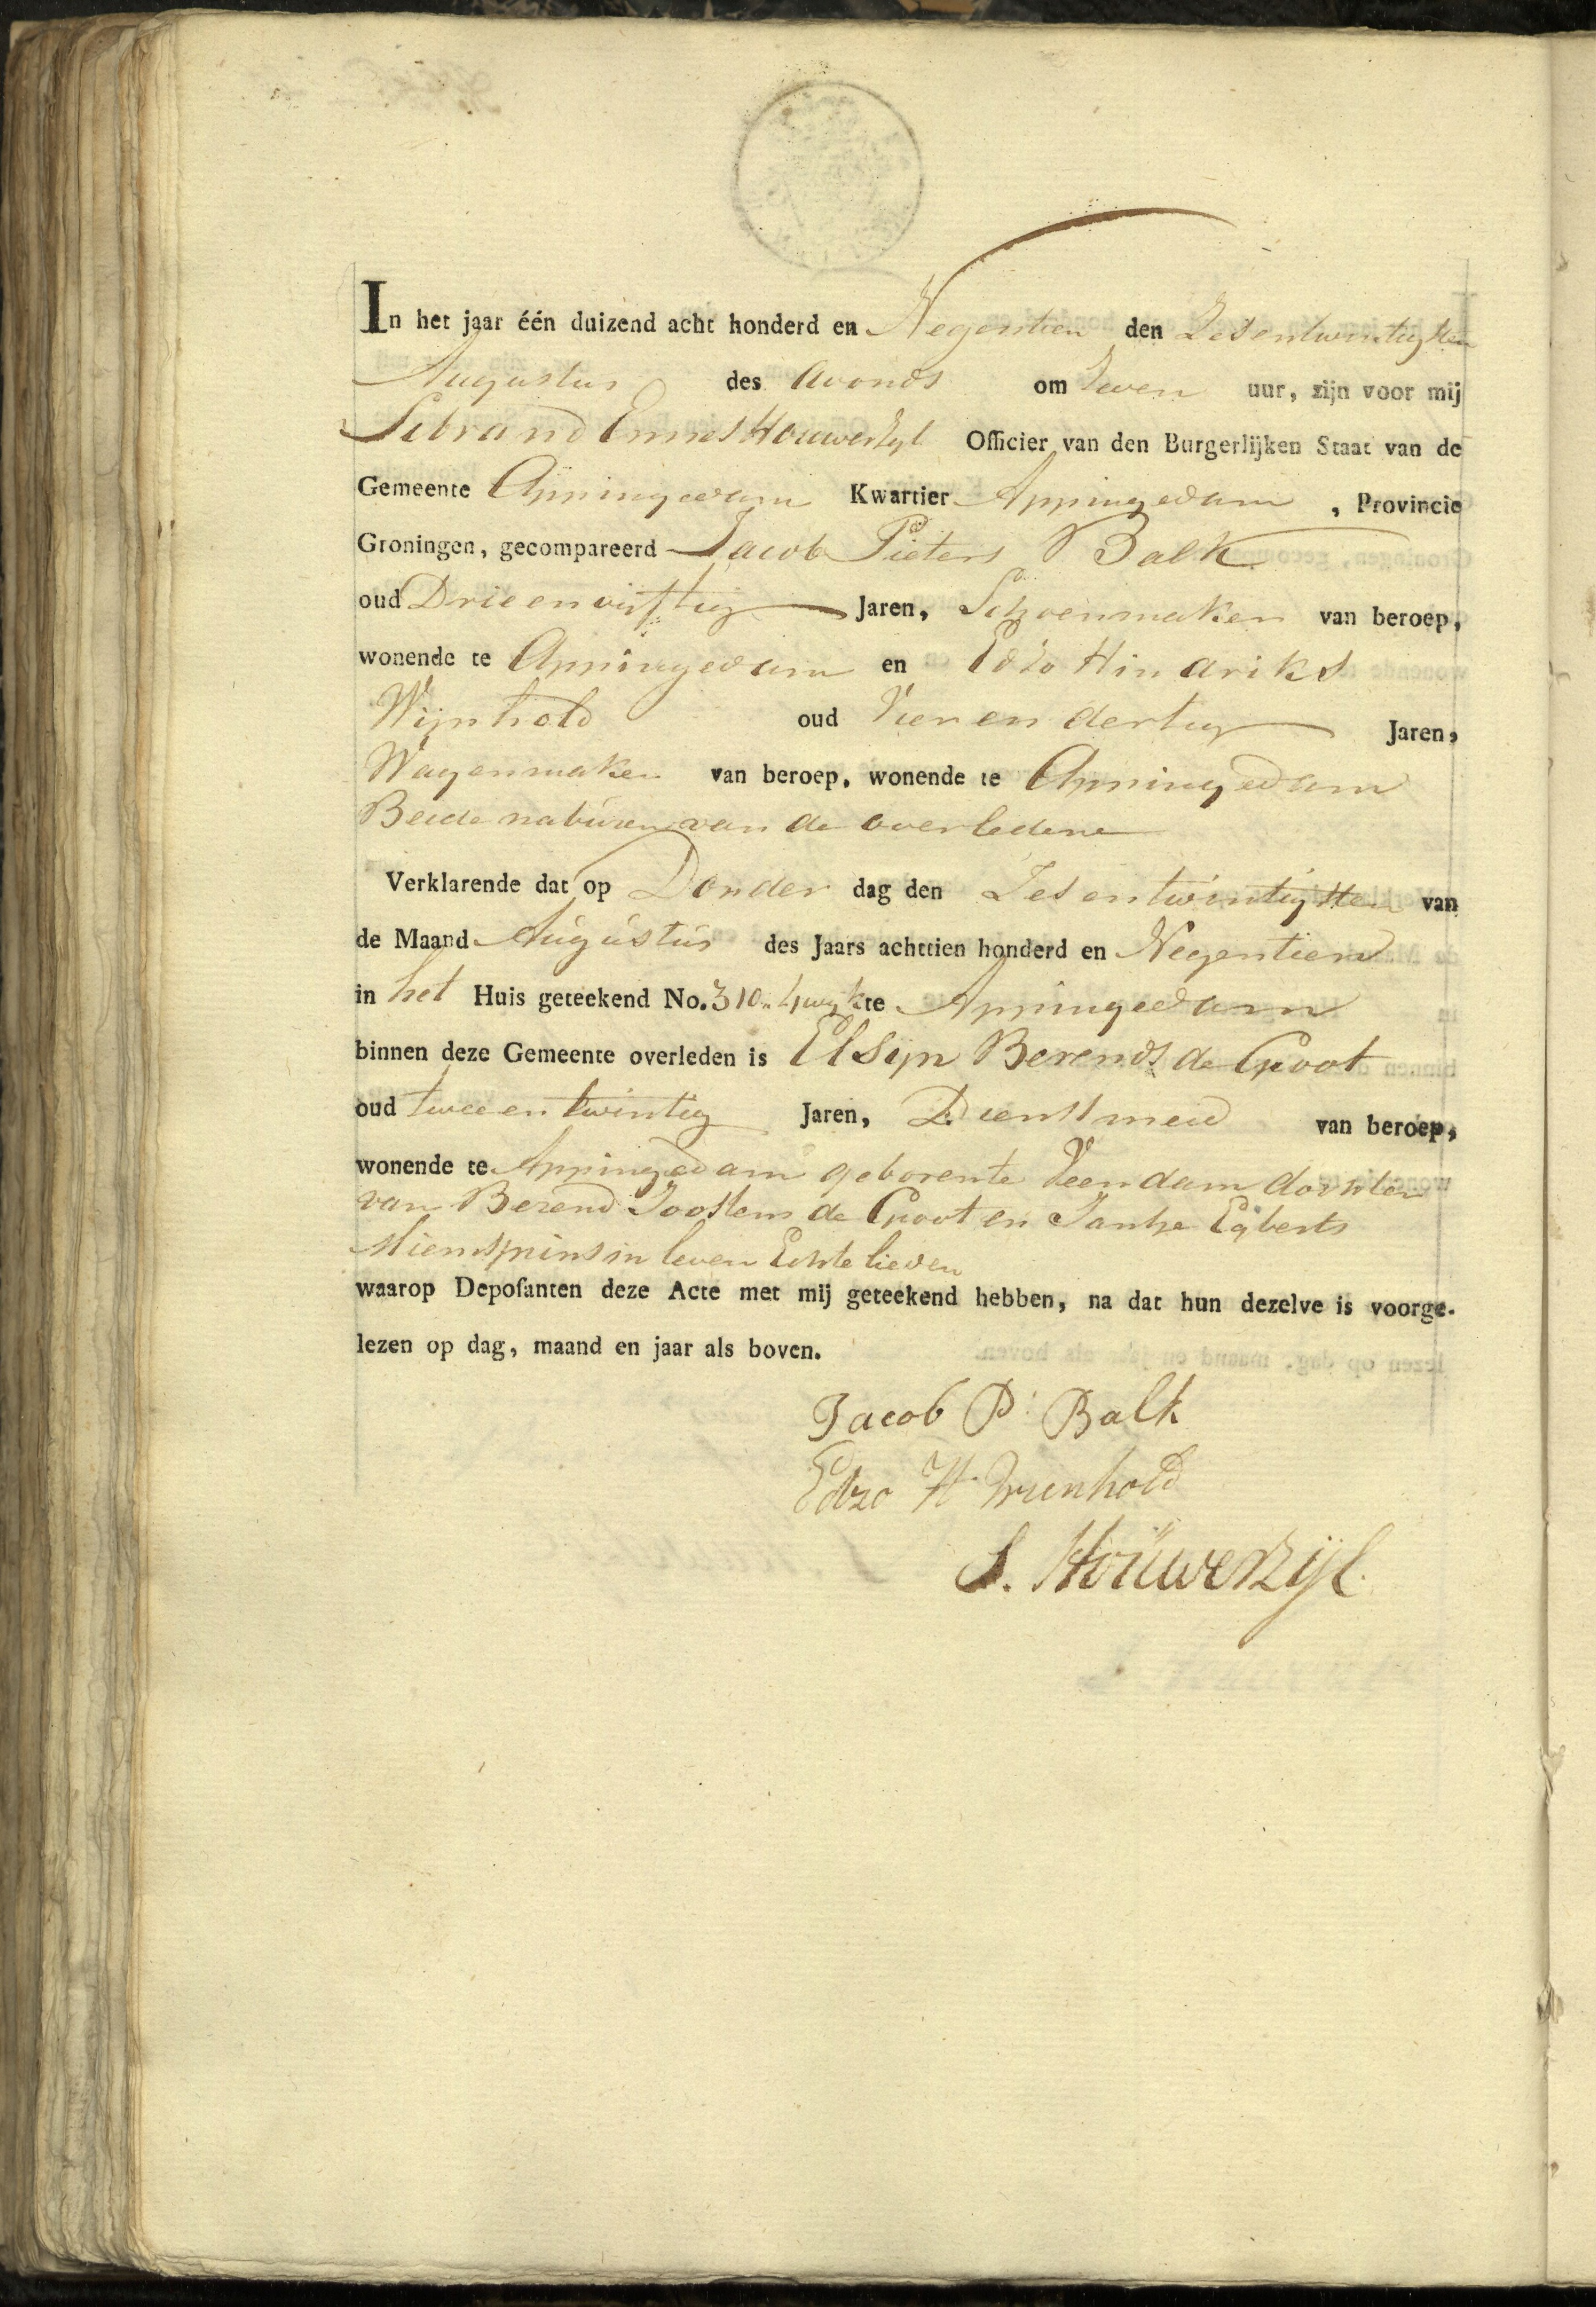 In het jaar één duizend acht honderd en Negentien den Zesentwintigsten
Augustus des avonds om Zeven uur, zijn voor mij
Sibrand Ennes Houwerzijl Officier van den Burgerlijken Staat van de
Gemeente Appingedam Kwartier Appingedam, Provincie
Groningen, gecompareerd Jacob Pieters Balk
oud Drieenvijftig Jaren, Schoenmaker van beroep,
wonende te Appingedam en Edzo Hindriks
Wijnhold oud Vierendertig Jaren,
Wagenmaker van beroep, wonende te Appingedam
Beide naburen van de overledene
Verklarende dat op Donder dag den Zesentwintigsten van
de Maand Augustus des Jaars achttien honderd en Negentien
in het Huis geteekend No. 310. 4 wijk te Appingedam
binnen deze Gemeente overleden is Elsijn Berends de Groot
oud tweeentwintig Jaren, Dienstmeid van beroep,
wonende te Appingedam geboren te Veendam dochter
van Berend Joostens de Groot en Jantje Egberts
in leven Echtelieden
waarop Deposanten deze Acte met mij geteekend hebben, na dat hun dezelve is voorge-
lezen op dag, maand en jaar als boven.
Jacob P. Balk
Edzo H. Wienhold
S. Houwerzijl.